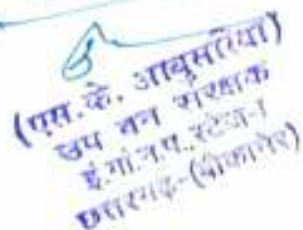 (एस.के. आबुसरिया)
उप वन संरक्षक
इं.गां.न.प. स्टेज-I
छत्तरगढ़-(बीकानेर)